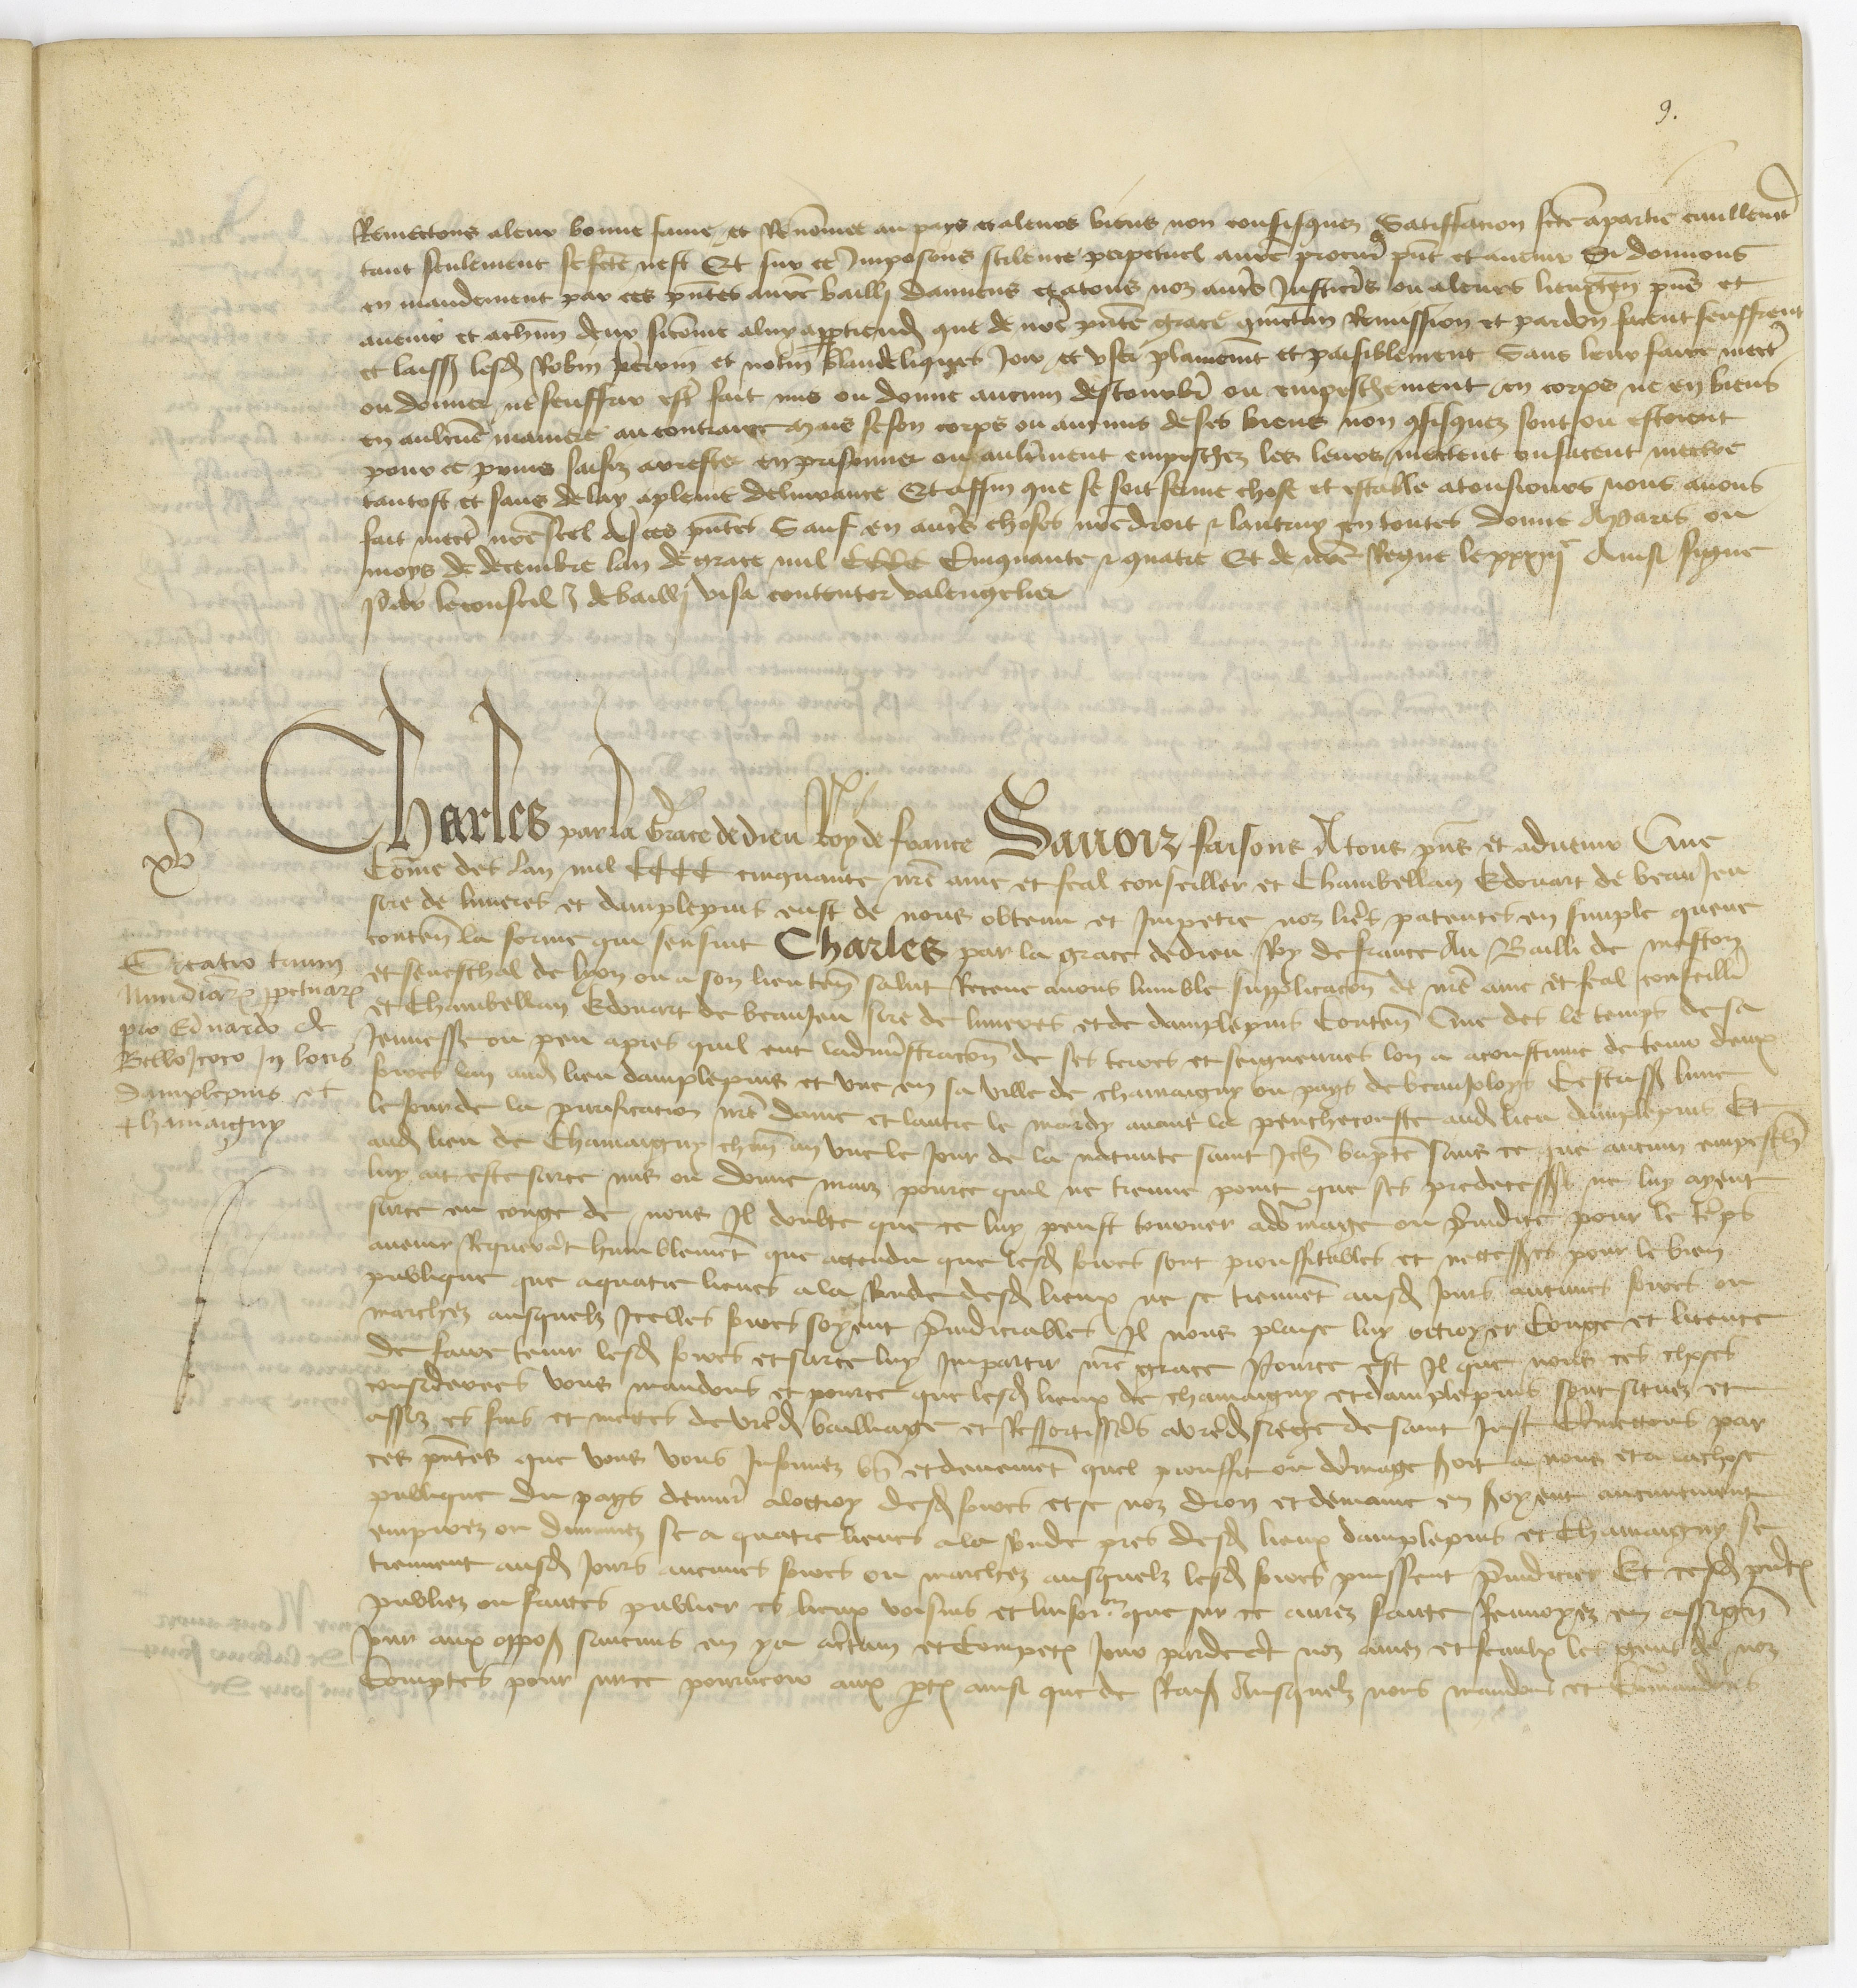 9.
Remectons a leur bonne fame et Renommee au pays et a leurs biens non confisquez Satisfacion fcte a partie civillemt
tant seulement se fcte nest Et sur ce Imposons scilence perpetuel a nre procur pnt et avenir Si donnons
en mandement par ces pntes a nre bailli damiens et a tous noz autrs Justicrs ou a leurs lieuxten pns et
avenir et a chun deulx sicome a luy appartiendr que de nre pnte grace quictan Remission et pardon facent seuffrent
et laissent lesd Robin perrin et nolin blandeliques Joir et user plainemt et paisiblement Sans leur faire mectr
ou donner ne seuffrir estr fait mis ou donne aucun destourbr ou empeschement en corps ne en biens
en aulcune maniere au contraire Mais se son corps ou aucuns de ses biens non cfisquez sont ou estoient
pour ce prins saisiz arrester emprisonner ou aultrment empeschez les leurs mectent ou facent mectre
tantost et sans delay a pleine delivrance Et affin que se soit ferme chose et estable a tousiours nous avons
fait mectr nre scel a ces pntes Sauf en autrs choses nre droit et lautruy en toutes donne A paris ou
moys de decembre lan de grace mil CCCC Cinquante et quatre Et de nre Regne le xxxiije Ainsi signe
Par le conseil J de bailly visa contentor valengelier
Charles par la Grace de dieu Roy de france Savoir faisons A tous pns et advenir Que
Come des lan mil CCCC cinquante nre ame et feal conseiller et Chambellan Edouart de beaujeu
sire de lineres et damplepuis eust de nous obtenu et Impetre noz lrs patentes en simple queue
conten la forme qui sensuit Charles par la grace de dieu Roy de france Au Bailli de mascon
et seneschal de lyon ou a son lieuten salut Receue avons lumble supplicacon de nre ame et feal conseillr
et Chambellan Edouart de beaujeu sire de lineres et de damplepuis Conten Que des le temps de sa
Jennesse ou peu apres quil eut ladministracon de ses terres et seigneuries lon a acoustume de tenir deux
foires lan aud lieu damplepuis et une en sa ville de chamaigny ou pays de beaujoloys Cestass lune
le Jour de la purification nre dame et lautre le mardy avant la penthecouste aud lieu damplepuis Et
aud lieu de Chamaigny chun an une le Jour de la nativite saint Jehn bapte sans ce que aucun empeschr
luy ait este sur ce mis ou donne maiz pource quil ne treuve point que ses predecess ne luy ayent
sur ce eu conge de nous Il doubte que ce luy peust tourner a domage ou preiudice pour le temps
avenir Requerat humblement que attendu que lesd foires sont prouffitables et necesses pour le bien
publique que a quatre lieues a la Ronde desd lieux ne se tiennet ausd Jours aucunes foires ou
marchez ausquelz Icelles foires soyent preiudiciables Il nous plaise luy octroyer Conge et licence
de faire tenir lesd foires et sur ce luy Impartir nre grace Pource est Il que nous ces choses
considerees vous mandons et pource que lesd lieux de chamaigny et damplepuis sont situez et
assiz es fins et mettes de vred bailliage et Ressortissas a vred siege de saint Just Commectons par
ces pntes que vous vous Informez bn et deuement quel prouffit ou domage soit a nous et a la chose
publique du pays denuir a loctroy desd foires et se noz droiz et demaine en soyent aucunement
empirez ou diminuez se a quatre lieues a la Ronde pres desd lieux damplepuis et Chamaigny se
tiennent ausd Jours aucunes foires ou marchez ausquelz lesd foires puissent preiudicier Et cesd pntes
publiez ou faictes publier es lieux voisins et linforon que sur ce aurez faicte Renvoyez en assign
Jour aux oppos saucuns en ya a certain et Competent Jour pardevt noz amez et feaulx les gens de noz
Comptes pour sur ce pourveoir aux ptes ainsi que de Rais Ausquelz nous mandons et Comandons
xv
Creatio trium
Nundinar perpetuar
pro Edwardo de
Bellojoco In locis
Damplepuis et
Chamaigny